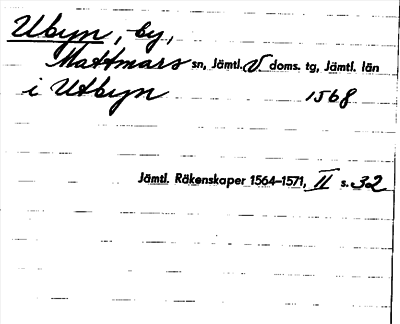 Ubyn, by,
Mattmars sn, Jämtl. V doms. tg, Jämtl. län
i Utbyn 1568
Jämtl. Räkenskaper 1564–1571, II s. 32